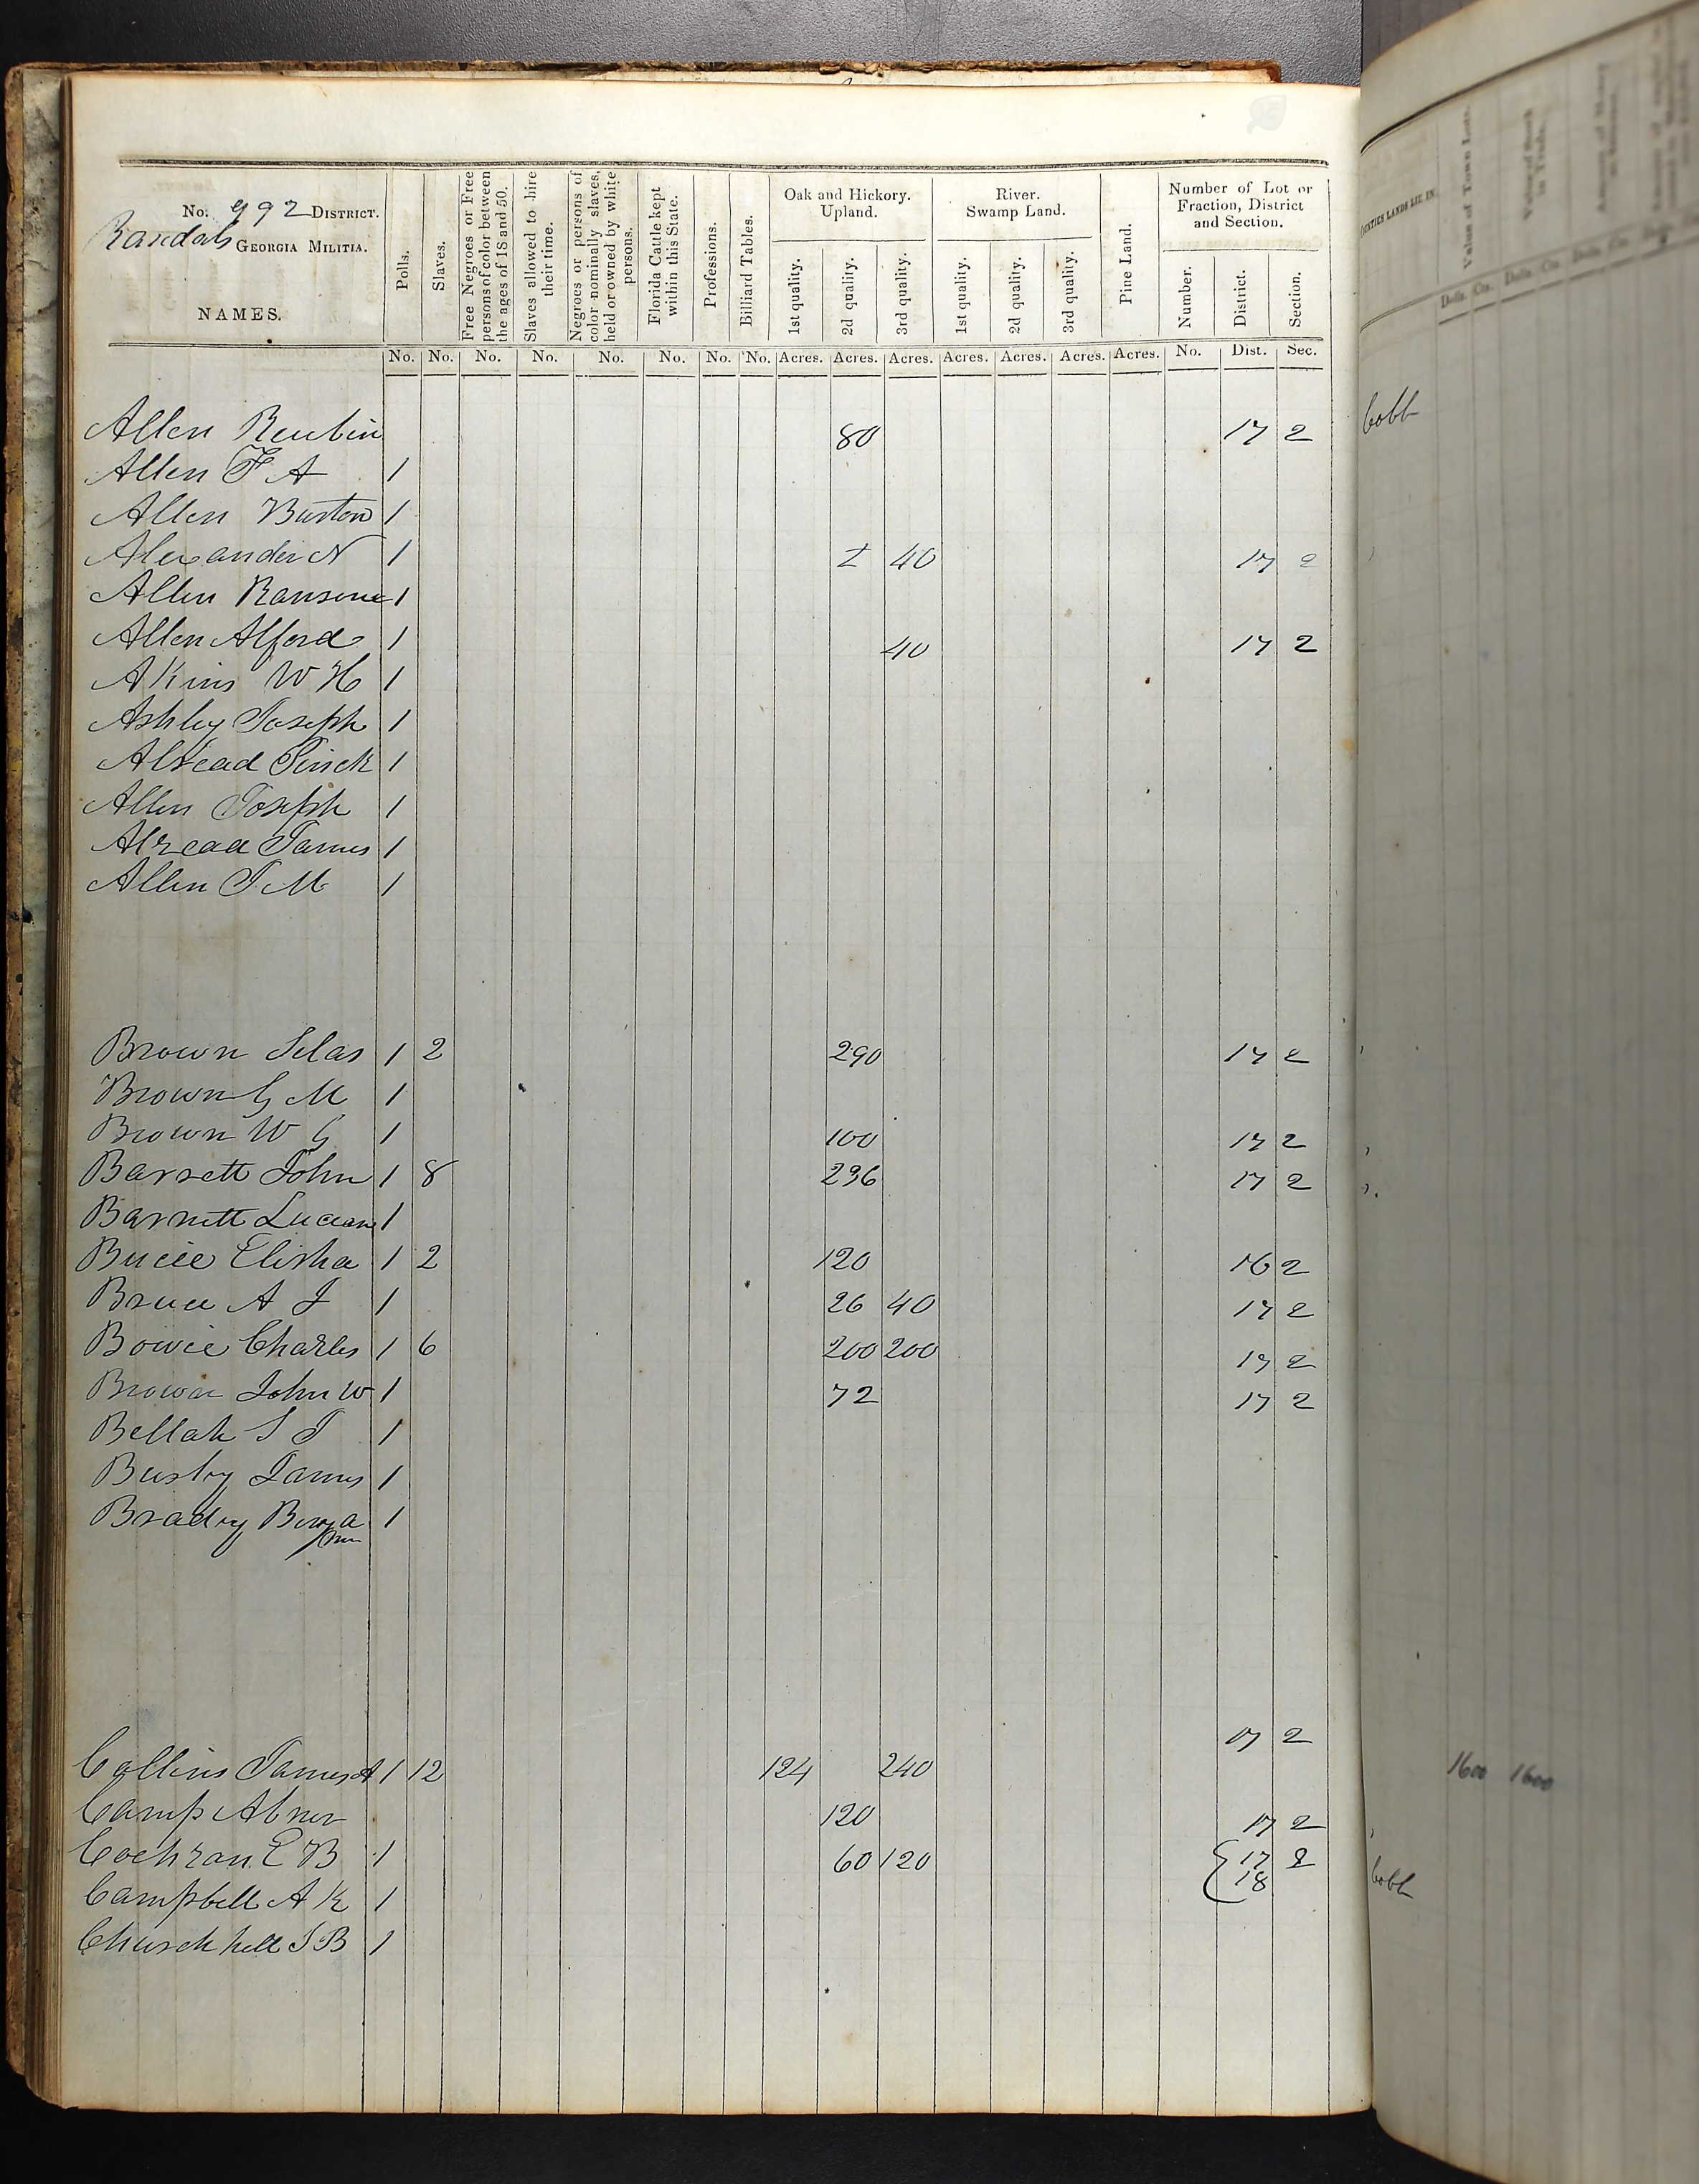 No. 992 DISTRICT.
Randals GEORGIA MILITIA.
NAMES.
Polls.
Slaves.
Free Negroes or Free persons of color between the ages of 18 and 50.
Slaves allowed to hire their time.
Negroes or persons of color nominally slaves, held or owned by white persons.
Florida Cattle kept within this State.
Professions.
Billiard Tables.
Oak and Hickory. Upland.
1st quality. 2d quality. 3rd quality.
River. Swamp Land.
1st quality. 2d quality. 3rd quality.
Pine Land.
Number of Lot or Fraction, District and Section.
Number. District. Section.
No. No. No. No. No. No. No. No. Acres. Acres. Acres. Acres. Acres. Acres. Acres. No. Dist. Sec.
Allen Reubin 80 17 2 Cobb
Allen F A 1
Allen Burton 1
Alexander N 1 40 17 2
Allen Ransome 1
Allen Alford 1 40 17 2
Akins W H 1
Ashley Joseph 1
Alread Sinck 1
Allen Joseph 1
Alread James 1
Allen J M 1
Brown Silas 1 2 290 17 2
Brown G M 1
Brown W G 1 100 17 2
Barrett John 1 8 236 17 2
Barnett Lucian 1
Buice Elisha 1 2 120 16 2
Bruce A J 1 26 40 17 2
Bowie Charles 1 6 200 200 17 2
Brown John W 1 72 17 2
Bellah S T 1
Busby James 1
Bradry Benja 1
min
17 2
Collins James A 1 12 124 240 1600 1600
Camp Abner 120 17 2
Cochran E B 1 60 120 17 2
18 Cobb
Campbell A K 1
Churchhell J B 1
COUNTIES LANDS LIE IN.
Value of Town Lots.
Value of Stock in Trade.
Dolls. Cts. Dolls. Cts. Dolls. Cts.